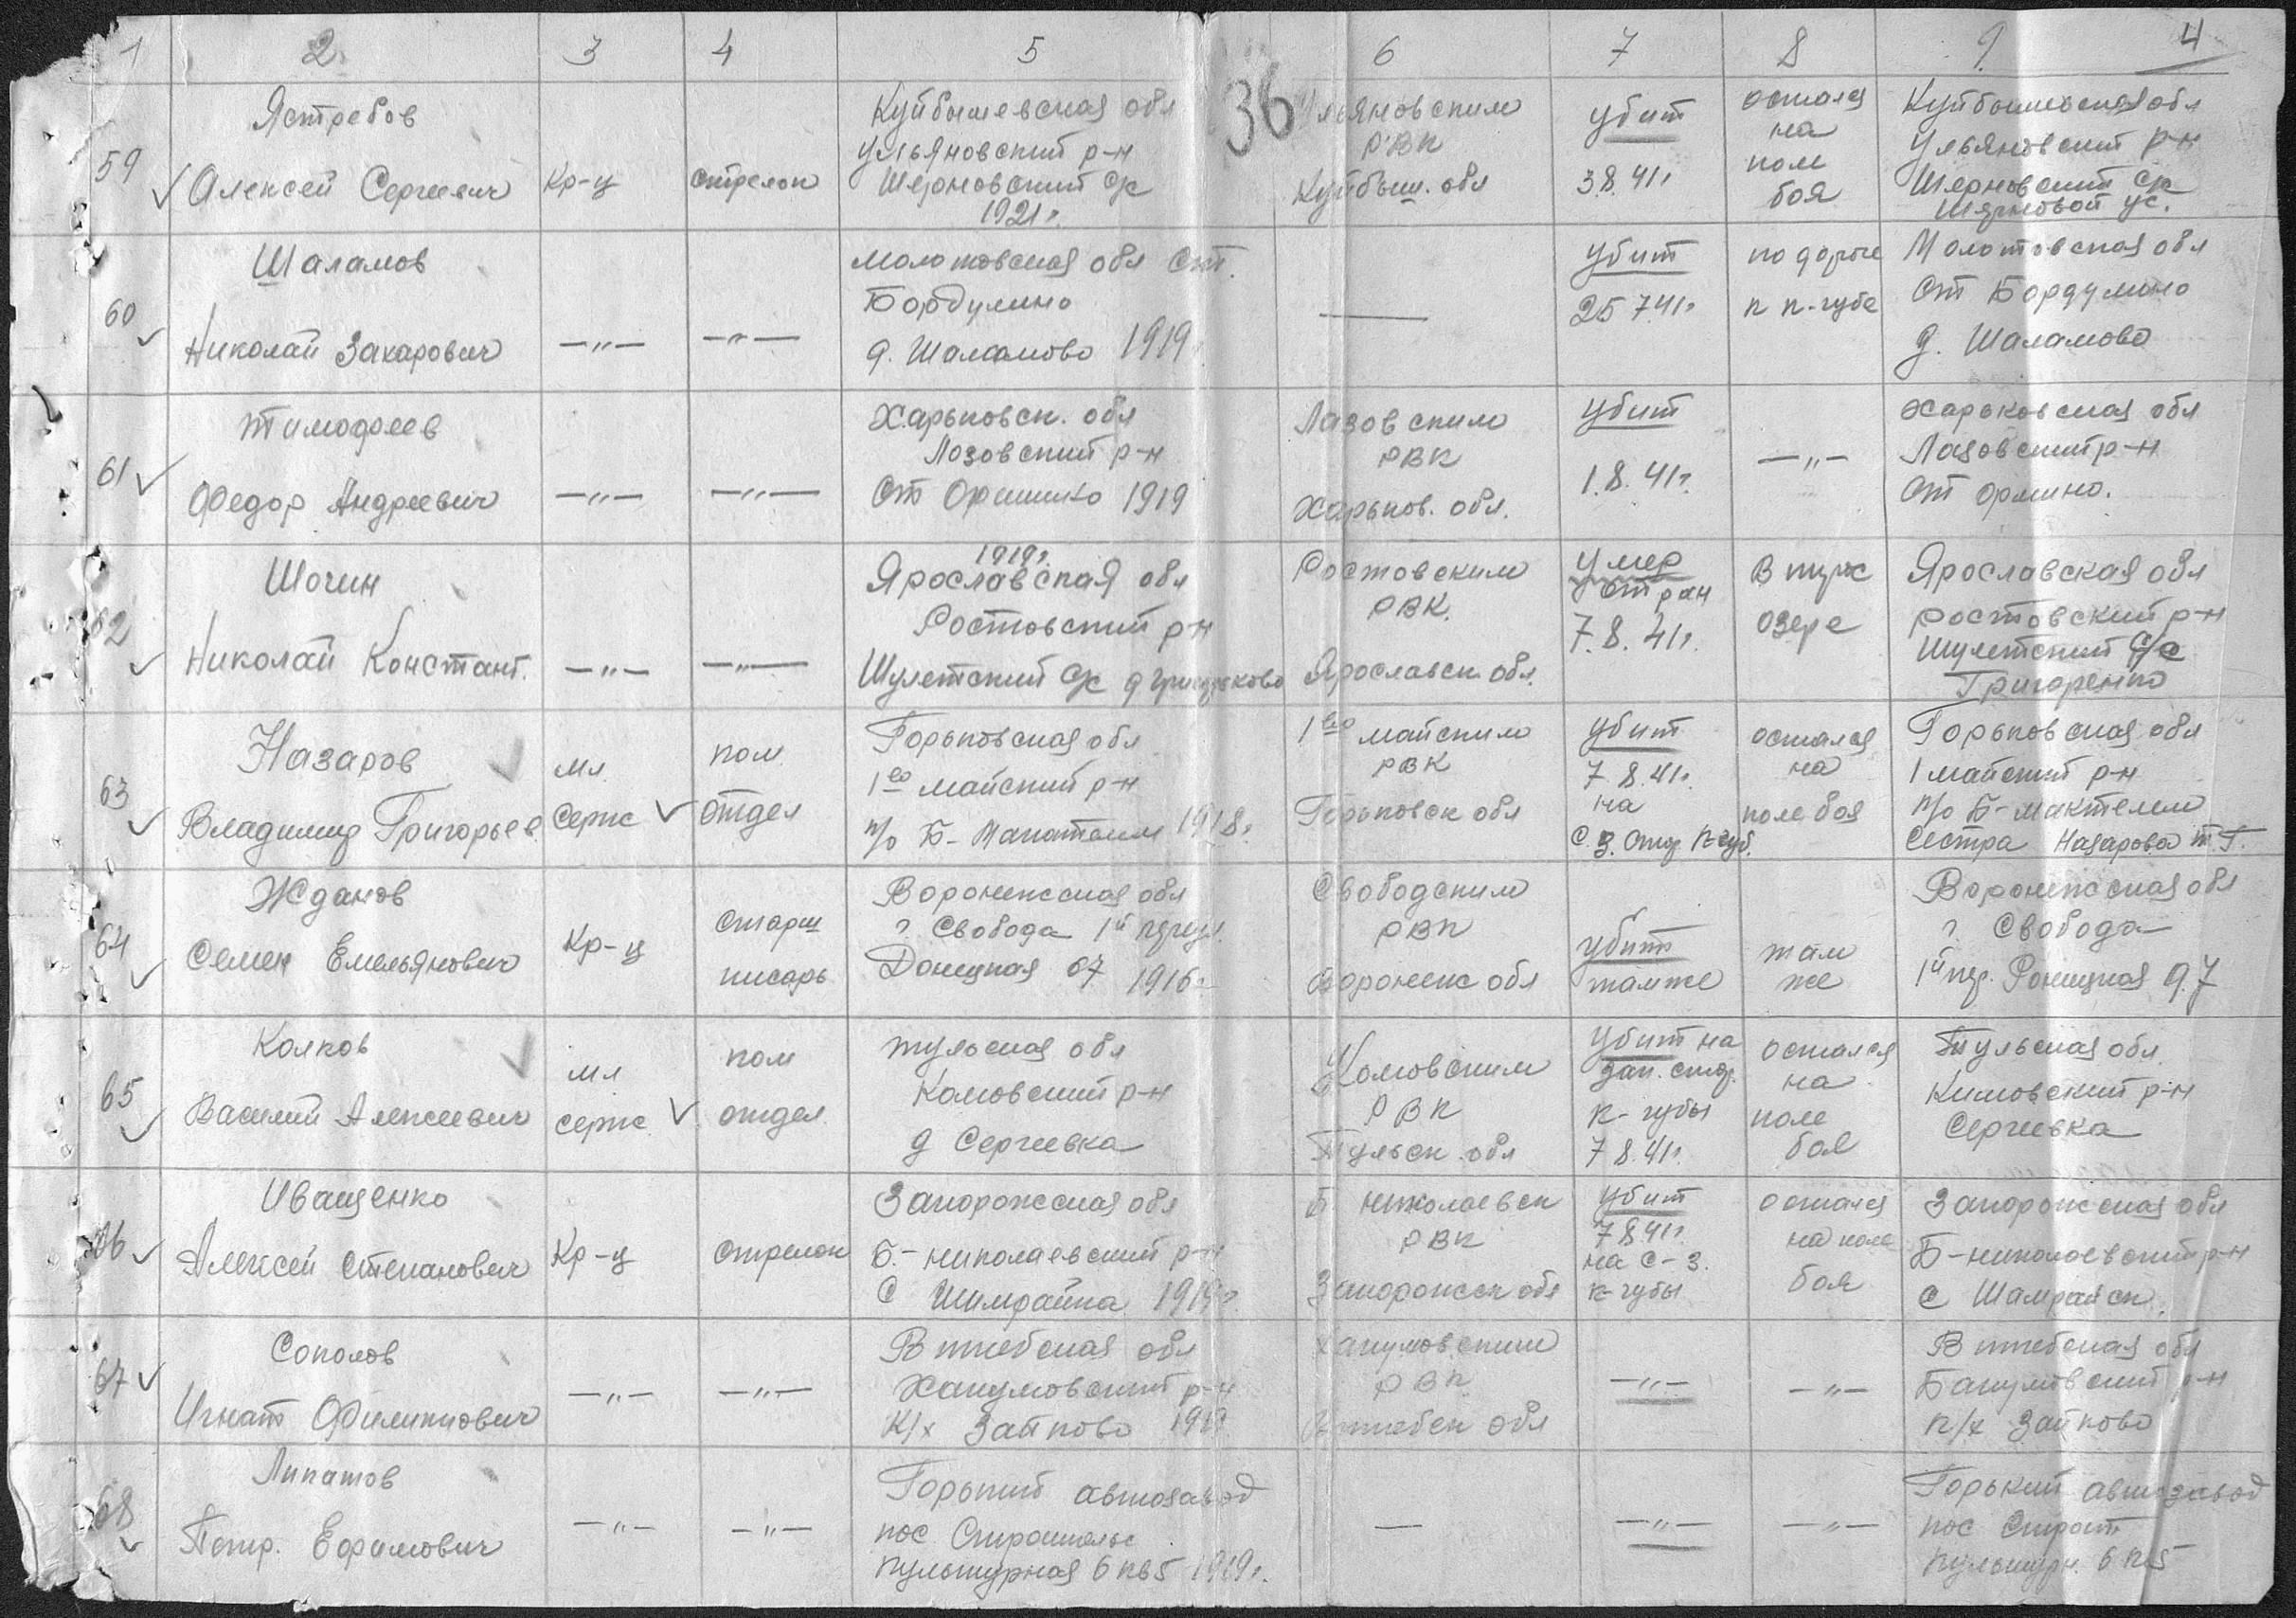 1 2 3 4 5 6 7 8 9 4
36
59 Ястребов
Алексей Сергеевич
Кр-ц
стрелок
Куйбышевская обл
Ульяновский р-н
с/с
1921г.
Ульяновским
РВК
Куйбыш. обл
убит
3.8.41г
остался
на
поле
боя
Куйбышевская обл
Ульяновский р-н
с/с
60 Шаламов
Николай Захарович
—"—
—"—
Молотовская обл ст.
Бордулино
д. Шаламово 1919
—
убит
25 7.41г
по дороге
к к-губе
Молотовская обл
ст Бордулино
д. Шаламово
61 Тимофеев
Федор Андреевич
—"—
—"—
Харьковск. обл
Лозовский р-н
ст 1919
Лазовским
РВК
Харьков. обл.
убит
1.8.41г.
—"—
Харьковская обл
Лазовский р-н
ст
62 Шочин
Николай Констант.
—"—
—"—
1919г.
Ярославская обл
Ростовский р-н
Шулетский с/с д
Ростовским
РВК.
Ярославск. обл.
умер
от ран
7.8.41г.
В
озере
Ярославская обл
Ростовский р-н
Шулетский с/с
63 Назаров
Владимир Григорьев.
мл.
серж
пом.
отдел
Горьковская обл
1го майский р-н
п/о Б- 1918г.
1го майским
РВК
Горьковск обл
убит
7.8.41г.
на
С.З. стор к-губ.
остался
на
поле боя
Горьковская обл
1 майский р-н
п/о Б-Мактелем
сестра Назарова Т.Г.
64 Жданов
Семен Емельянович
Кр-ц
старш
писарь
Воронежская обл
г Свобода 1й переул.
Донецкая 1916г
Свободским
РВК
Воронеж обл
убит
там же
там
же
Воронежская обл
г. Свобода
1й пер. д.7
65 Колков
Василий Алексеевич
мл
серж
пом
отдел
Тульская обл
Комовский р-н
д Сергеевка
Комовским
РВК
Тульск. обл
Убит на
зап. стор.
к-губы
7 8.41г.
остался
на
поле
боя
Тульская обл.
Кимовский р-н
Сергеевка
66 Иващенко
Алексей Степанович
Кр-ц
стрелок
Запорожская обл
Б.-николаевский р-н
с 1919г
Б николаевск
РВК
Запорожск обл
убит
7 8 41г
на С-З.
к-губы
остался
на поле
боя
Запорожская обл
Б-николаевский р-н
с
67 Соколов
Игнат Филиппович
—"—
—"—
Витебская обл
р-н
К/х Зайково 1919
РВК
Витебск обл
—"—
—"—
Витебская обл
р-н
к/х Зайково
68 Липатов
Петр. Ефимович
—"—
—"—
Горький автозавод
пос.
культурная 6 кв5 1919г.
—
—"—
—"—
Горький автозавод
пос Строит
культурн. 6 к5